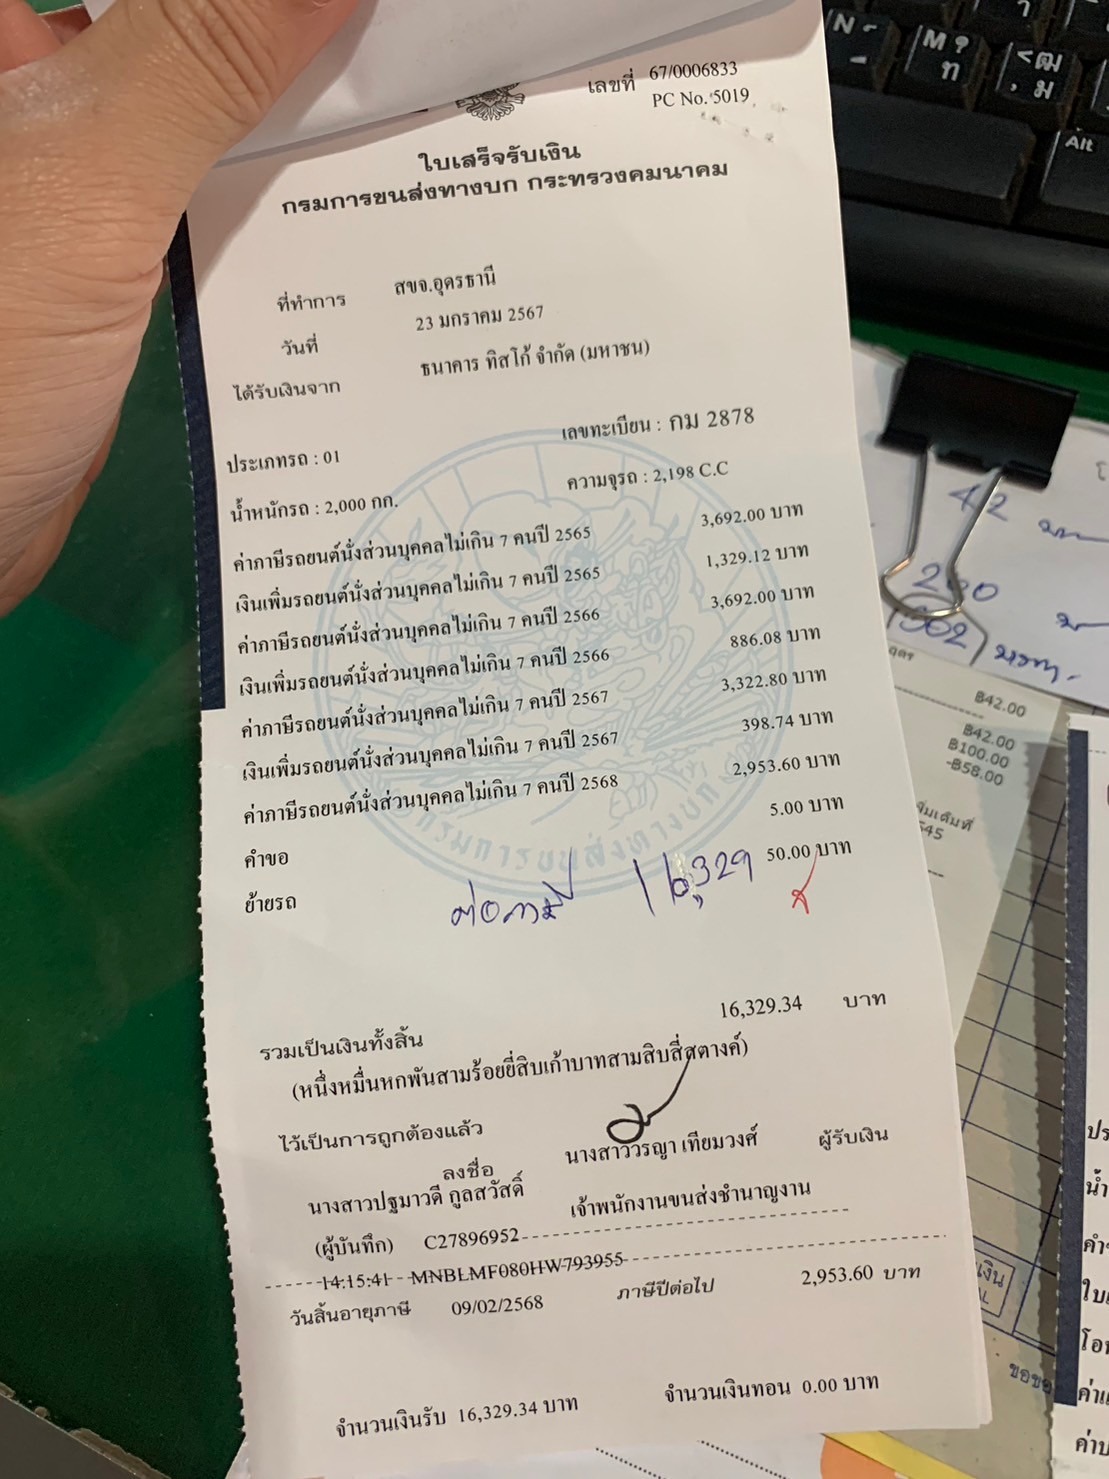 เลขที่ 67/0006833
PC No. 5019
ใบเสร็จรับเงิน
กรมการขนส่งทางบก กระทรวงคมนาคม
ที่ทำการ สขจ.อุดรธานี
วันที่ 23 มกราคม 2567
ได้รับเงินจาก ธนาคาร ทิสโก้ จำกัด (มหาชน)
ประเภทรถ : 01 เลขทะเบียน : กม 2878
น้ำหนักรถ : 2,000 กก. ความจุรถ : 2,198 C.C
ค่าภาษีรถยนต์นั่งส่วนบุคคลไม่เกิน 7 คนปี 2565 3,692.00 บาท
เงินเพิ่มรถยนต์นั่งส่วนบุคคลไม่เกิน 7 คนปี 2565 1,329.12 บาท
ค่าภาษีรถยนต์นั่งส่วนบุคคลไม่เกิน 7 คนปี 2566 3,692.00 บาท
เงินเพิ่มรถยนต์นั่งส่วนบุคคลไม่เกิน 7 คนปี 2566 886.08 บาท
ค่าภาษีรถยนต์นั่งส่วนบุคคลไม่เกิน 7 คนปี 2567 3,322.80 บาท
เงินเพิ่มรถยนต์นั่งส่วนบุคคลไม่เกิน 7 คนปี 2567 398.74 บาท
ค่าภาษีรถยนต์นั่งส่วนบุคคลไม่เกิน 7 คนปี 2568 2,953.60 บาท
คำขอ 5.00 บาท
ย้ายรถ 50.00 บาท
กรมการขนส่งทางบก
ต่อภาษี 16,329
รวมเป็นเงินทั้งสิ้น 16,329.34 บาท
(หนึ่งหมื่นหกพันสามร้อยยี่สิบเก้าบาทสามสิบสี่สตางค์)
ไว้เป็นการถูกต้องแล้ว
ลงชื่อ นางสาววิรญา เทียมวงศ์ ผู้รับเงิน
นางสาวปฐมาวดี กูลสวัสดิ์ เจ้าพนักงานขนส่งชำนาญงาน
(ผู้บันทึก) C27896952
14:15:41 MNBLMF080HW793955
วันสิ้นอายุภาษี 09/02/2568 ภาษีปีต่อไป 2,953.60 บาท
จำนวนเงินรับ 16,329.34 บาท จำนวนเงินทอน 0.00 บาท
N
M ?
ท
< ฒ
, ม
Alt
42
฿42.00
฿42.00
฿100.00
-฿58.00